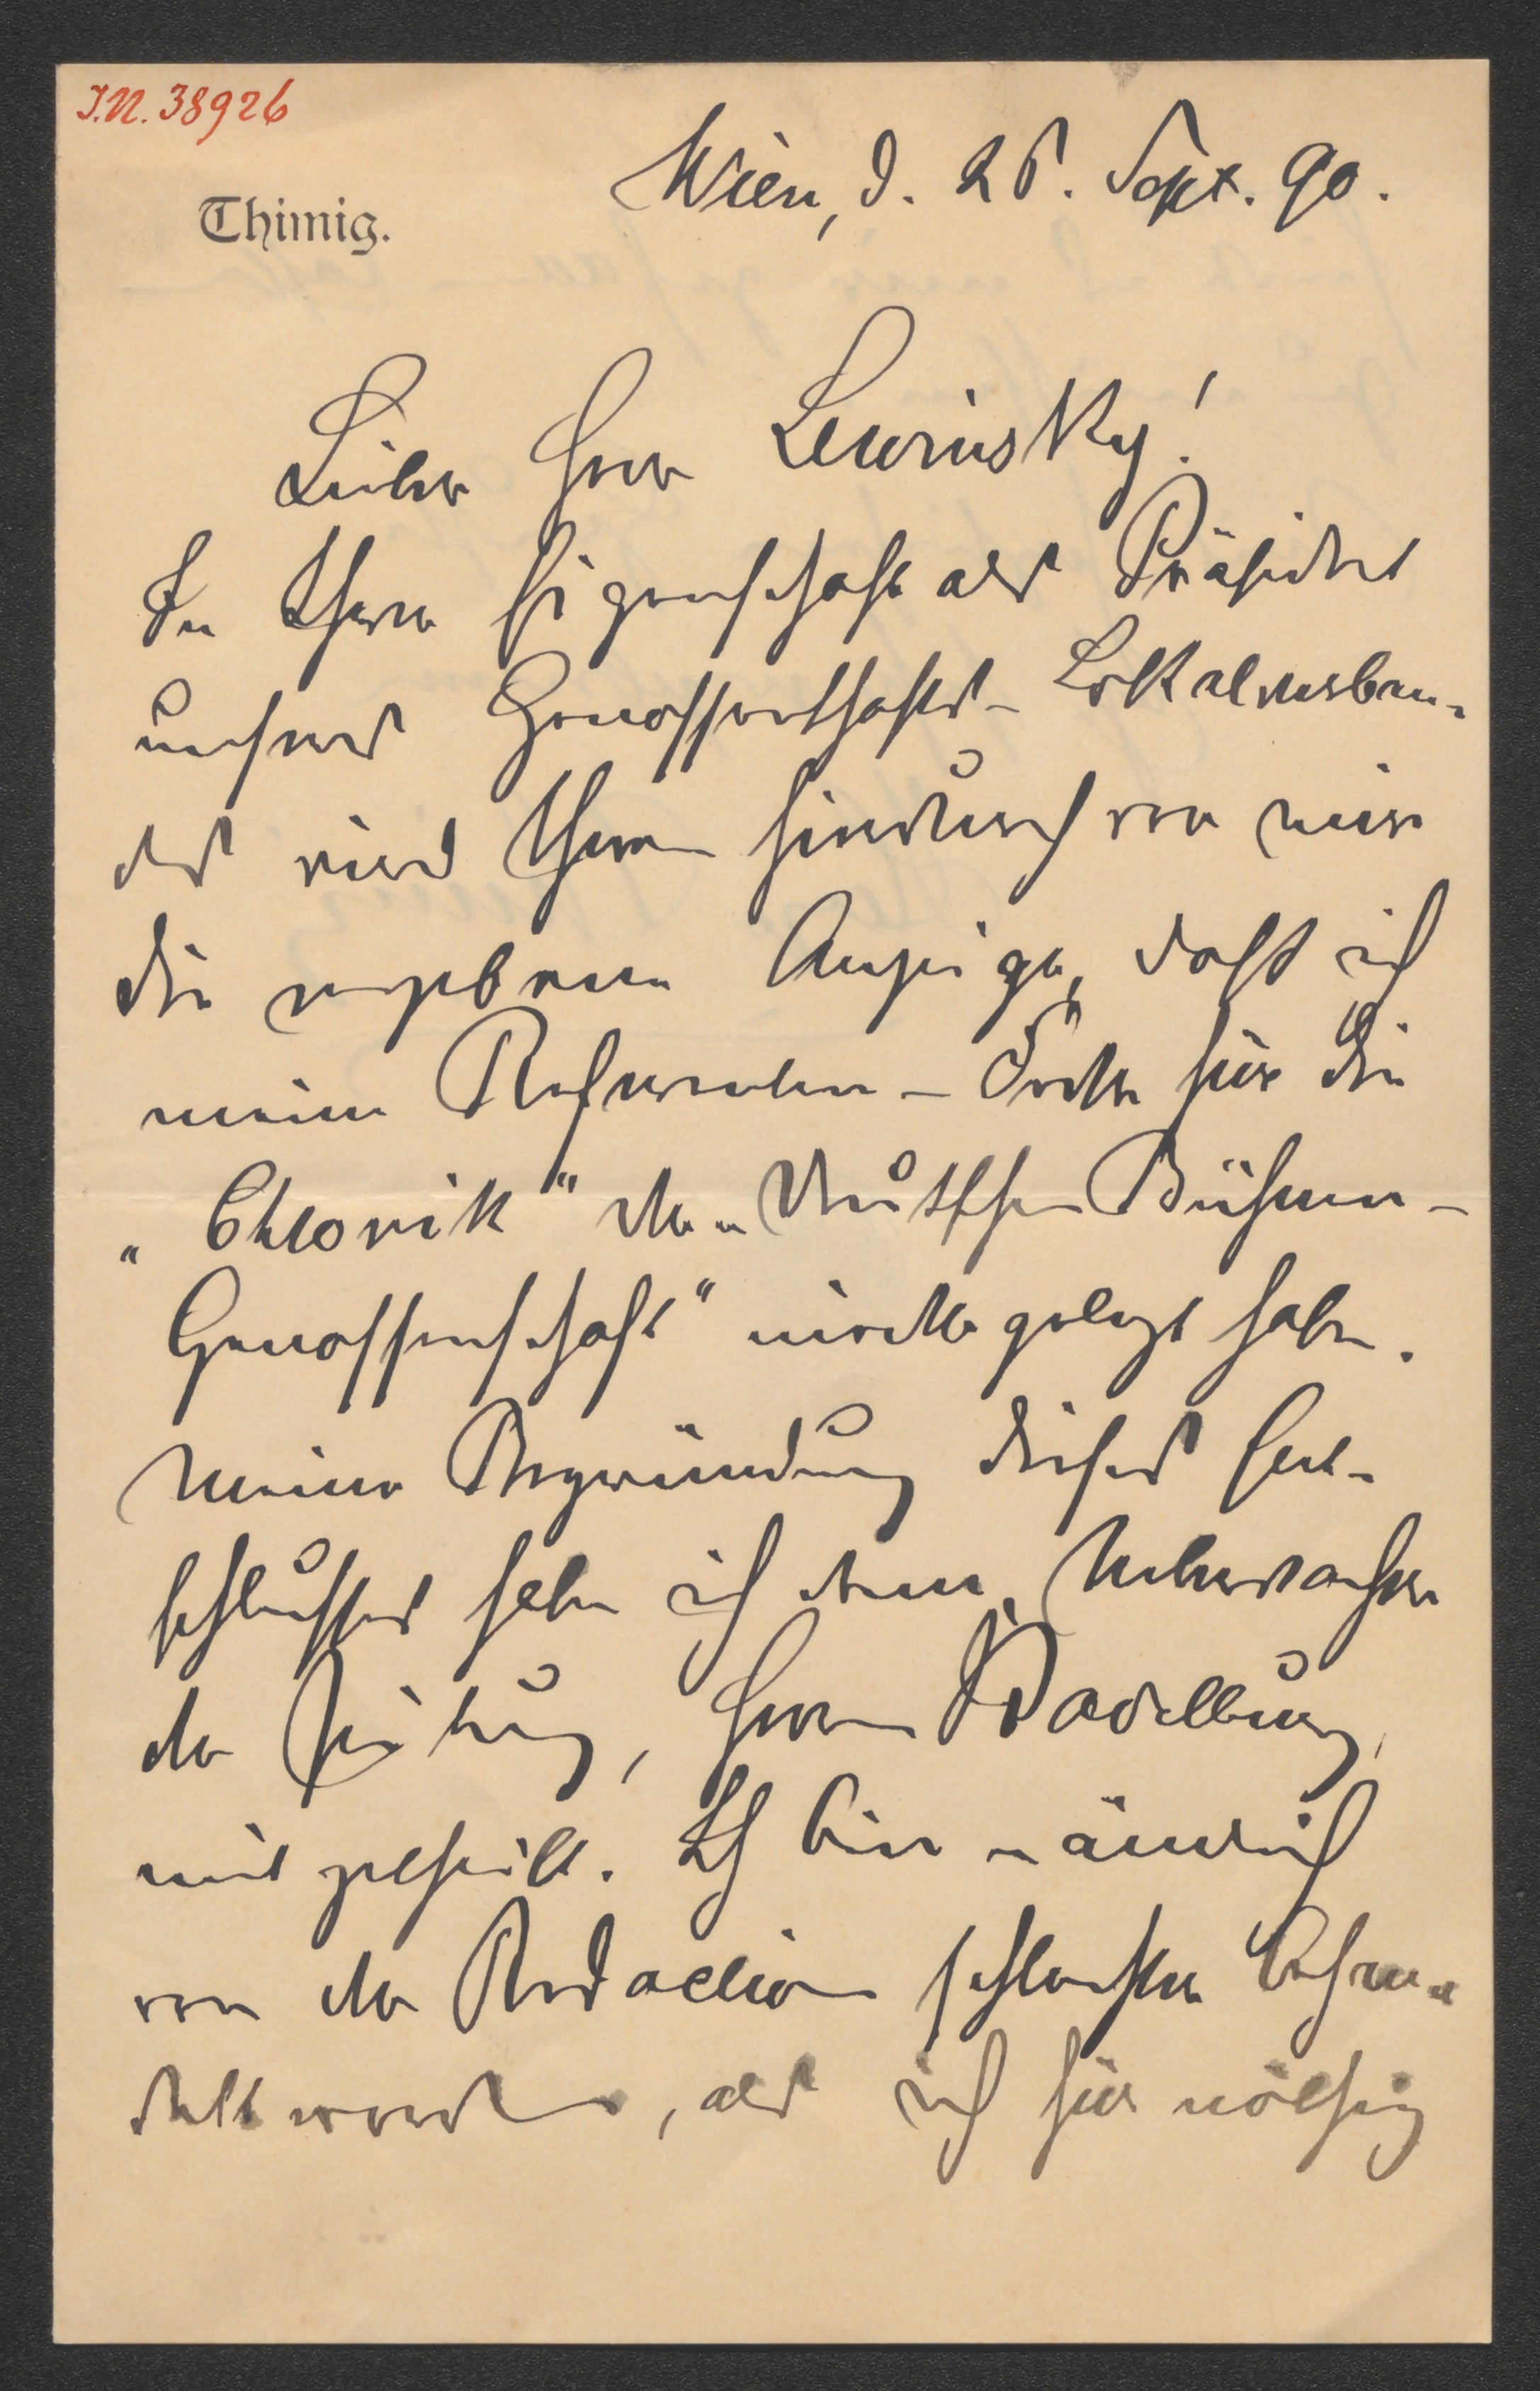 I.N. 38926
Thimig.
Wien, d. 25. Sept. 90.
Lieber Herr Lewinsky!
In Ihrer Eigenschaft als Präsident
unseres Genossenschafts-Lokalverban-
des wird Ihnen hierdurch von mir
die ergebene Anzeige, dass ich
meine Referenten-Feder für die
"Chronik" der "Deutschen Bühnen-
Genossenschaft" niedergelegt habe.
Meine Begründung dieses Ent-
schlusses habe ich dem
der Zeitung, Herrn Kadelburg,
mitgetheilt. Ich bin nämlich
von der Redaction schlechter behan-
delt worden, als ich für nöthig